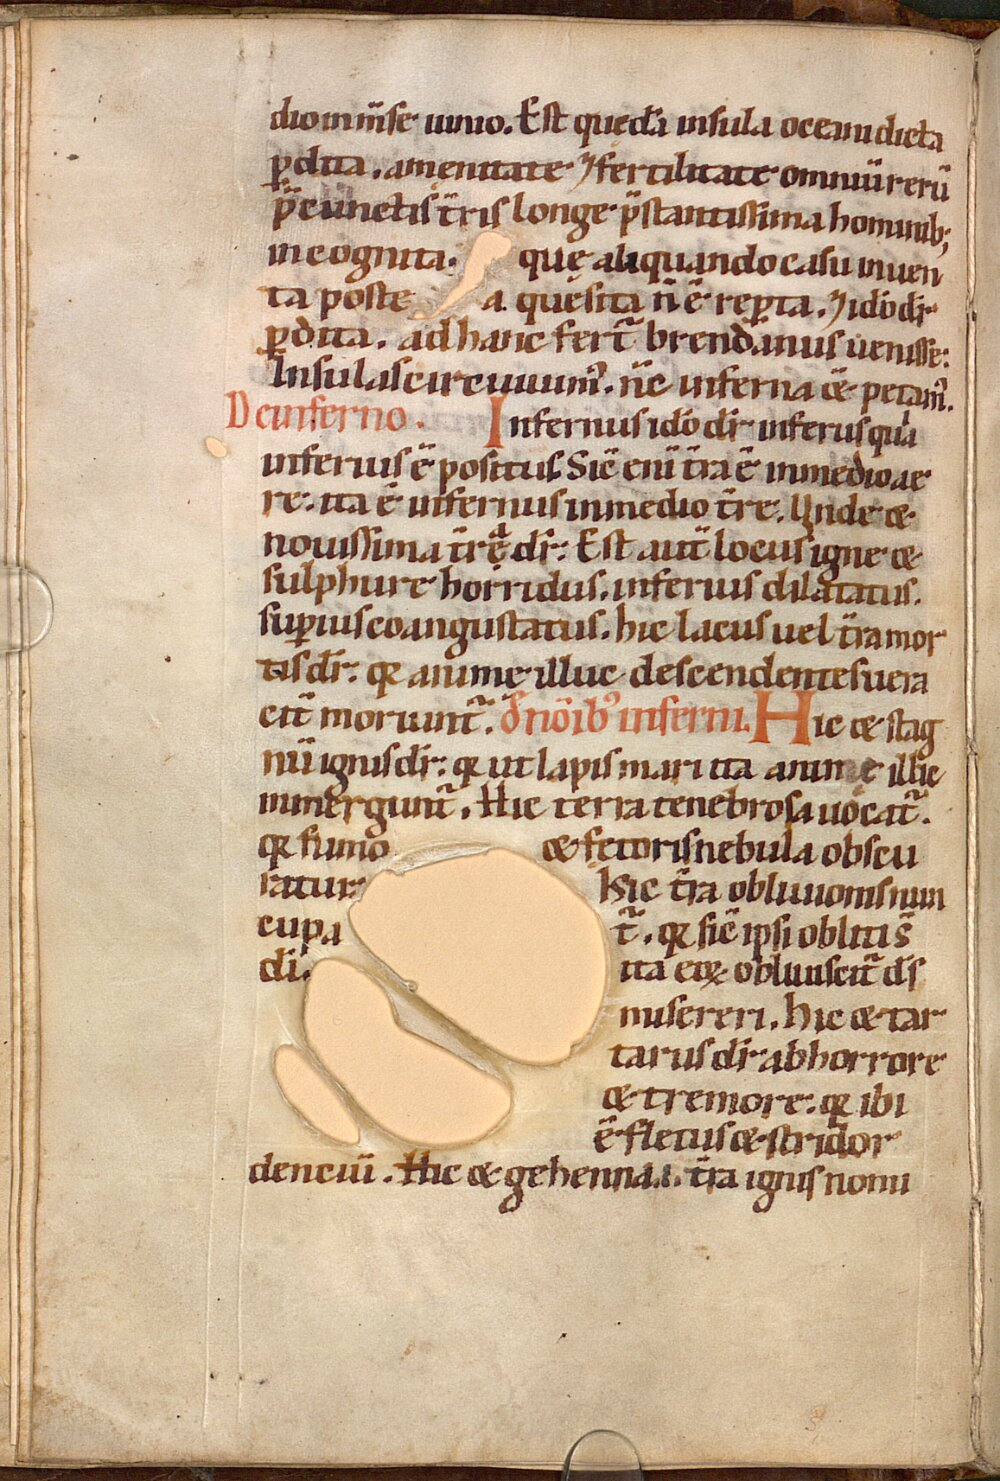 diominīse uiuo. Est quędā insula oceani dicta
ꝑdita. amenitate ⁊ fertilitate omniū rerū
p̄ cūnctis t̄ris longe p̄stantissima hominib;
incognita. quę aliquando casu inuen
ta poste a quęsita n̄ ē reꝑta. ⁊ idō dr̄
ꝑdita. ad hanc fert̄ brendanus uenisse:
Insulas circuiuim᷒. nc̄ inferna & petam᷒.
De inferno. Infernus idō dr̄ inferus quia
inferius ē positus. Sic̄ eni t̄ra ē in medio ae
re. ita ē infernus in medio t̄re. Unde &
nouissima t̄rę dr̄: Est aut̄ locus igne &
sulphure horridus. inferius dilatatus.
suꝑius coangustatus. hic lacus uel t̄ra mor
tis dr̄: qꝛ anime illuc descendentes uera
cit̄ moriunt̄. d̄ nōib᷒ inferni. Hic & stag
nū ignis dr̄: qꝛ ut lapis mari ita anime illic
inmergunt̄. Hic terra tenebrosa uocat̄.
qꝛ fumo & fetoris nebula obscu
ratur. Hic t̄ra obliuionis nun
cupa t̄. qꝛ sic̄ ipsi obliti s̄
di. ita eoꝝ obliuiscit̄ ds̄
misereri. hic & tar
tarus dr̄ ab horrore
& tremore: qꝛ ibi
ē fletus & stridor
denciū. Hic & gehenna .i. t̄ra ignis nomi